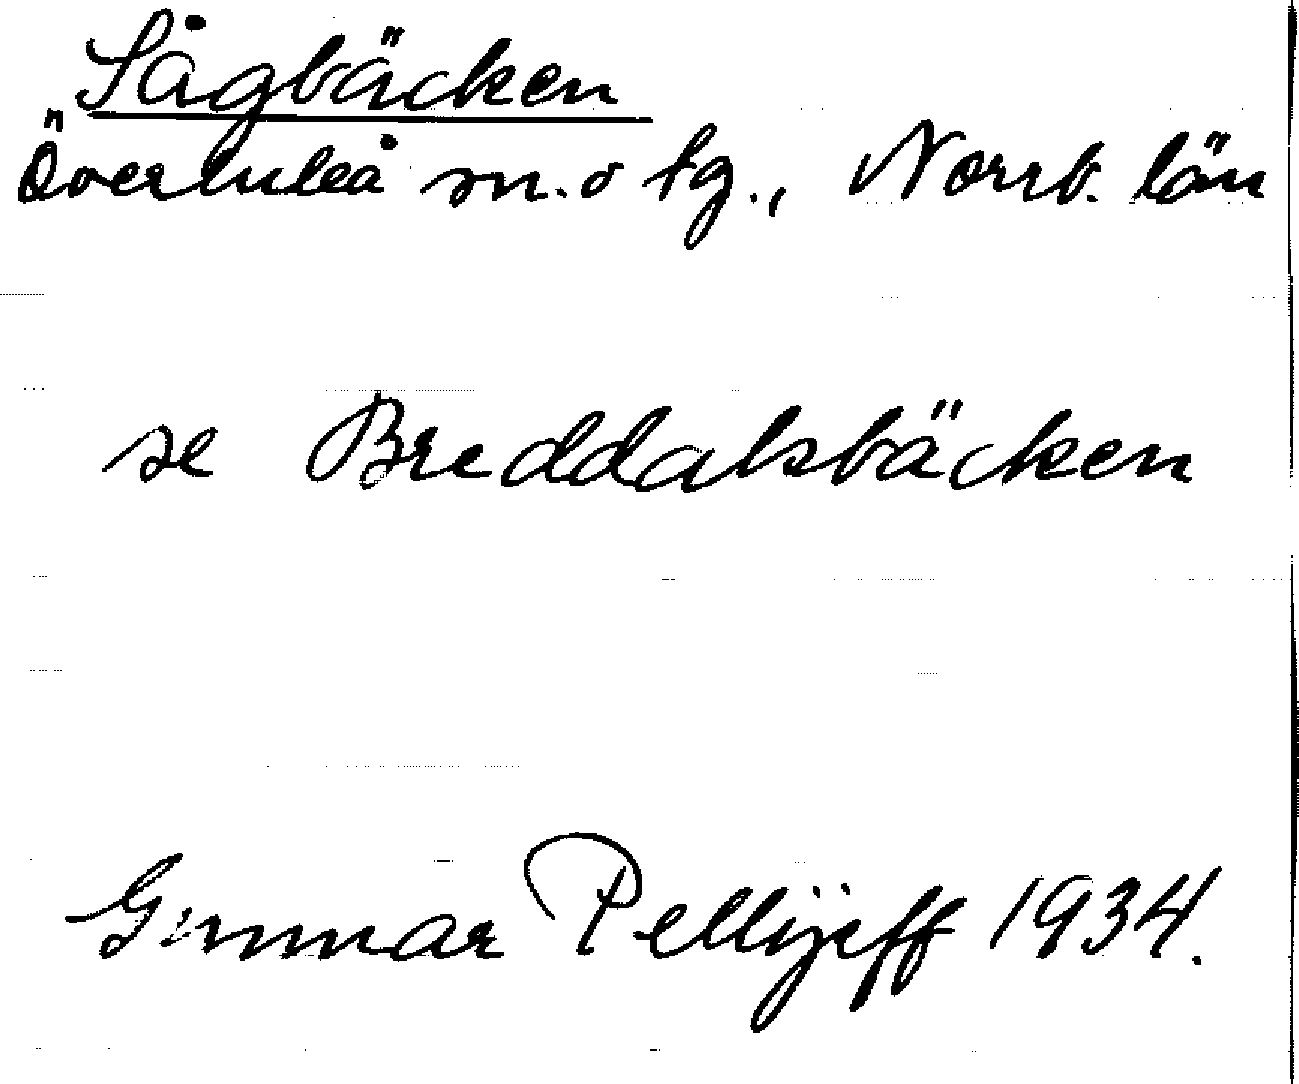 Sågbäcken
Överluleå sn. o tg., Norrb. län
se Breddalsbäcken
Gunnar Pellijeff 1934.